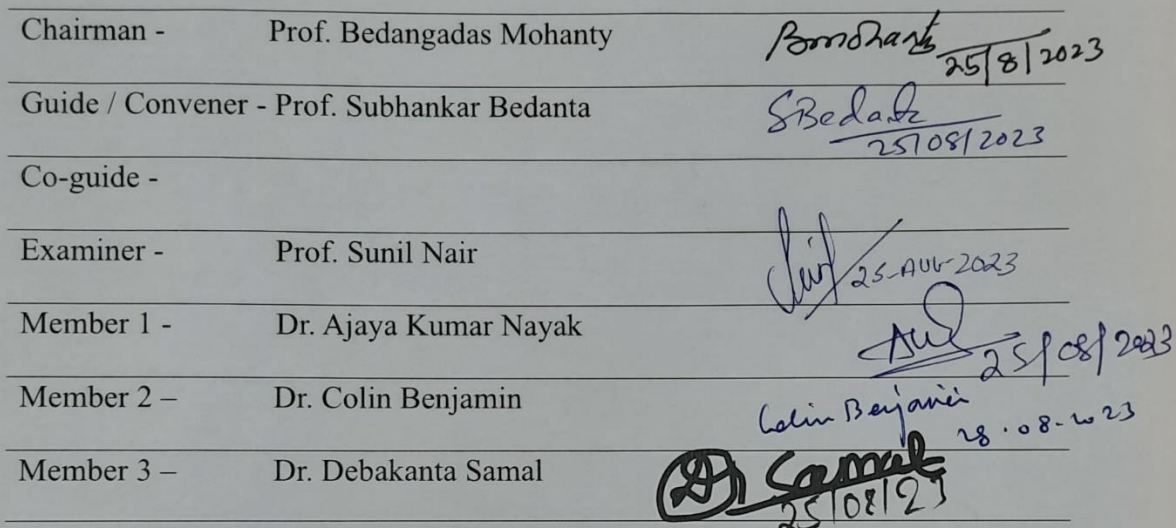 Chairman - Prof. Bedangadas Mohanty Bmohanty 25/8/2023
Guide / Convener - Prof. Subhankar Bedanta SBedanta 25/08/2023
Co-guide -
Examiner - Prof. Sunil Nair 25-AUG-2023
Member 1 - Dr. Ajaya Kumar Nayak 25/08/2023
Member 2 – Dr. Colin Benjamin Colin Benjamin 28.08.2023
Member 3 – Dr. Debakanta Samal Samal 25/08/23